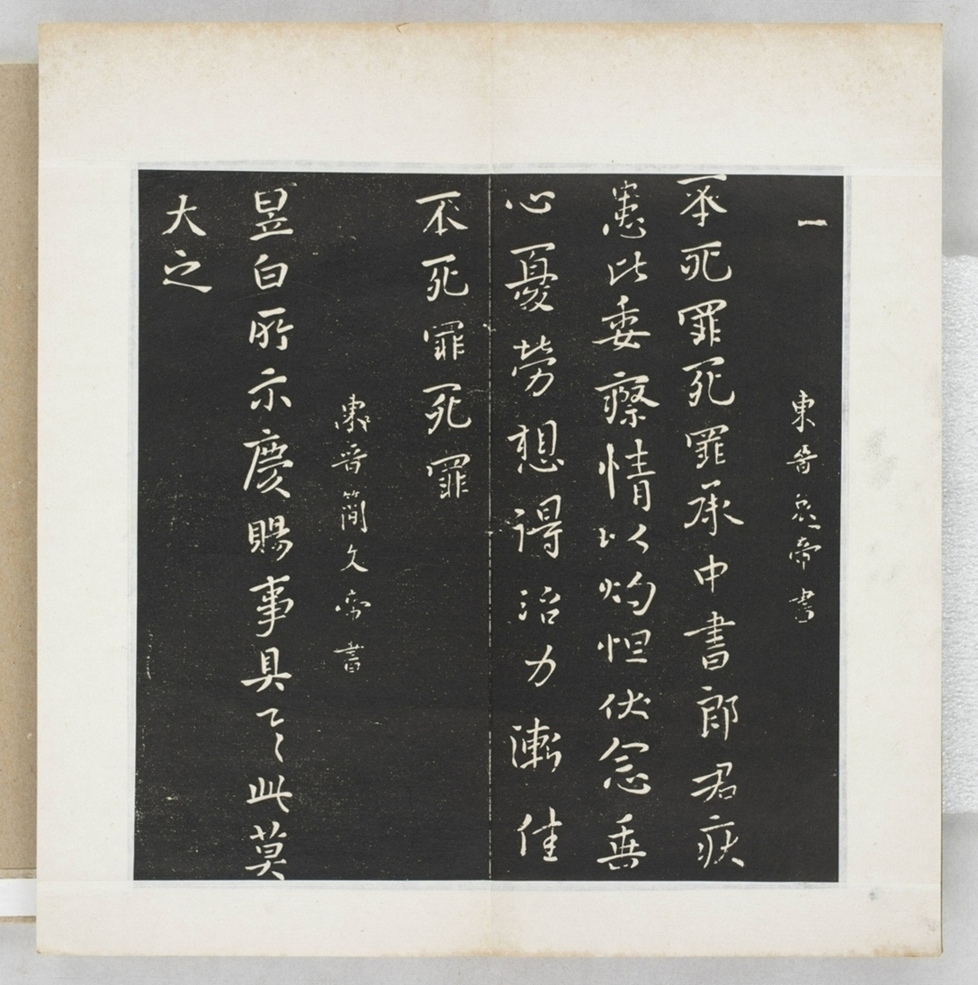 一 東晉哀帝書
丕死罪死罪承中書郎君疾
患比委瘵情以灼怛伏念垂
心憂勞想得治力漸佳
丕死罪死罪
東晉簡文帝書
昱白所示慶賜事具此莫
大之